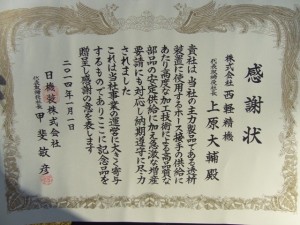 感謝状
株式会社 西軽精機
代表取締役社長
上原大輔殿
貴社は当社の主力製品である透析
装置に使用するホース接手の供給に
あたり高度な加工技術による高品質な
部品の安定供給に加え急激な増産
要請にも対応し納期遵守に尽力
されました
これは当社事業の運営に大きく寄与
するものでありここに記念品を
贈呈し感謝の意を表します
二〇一四年一月一日
日機装株式会社
代表取締役社長
甲斐敏彦